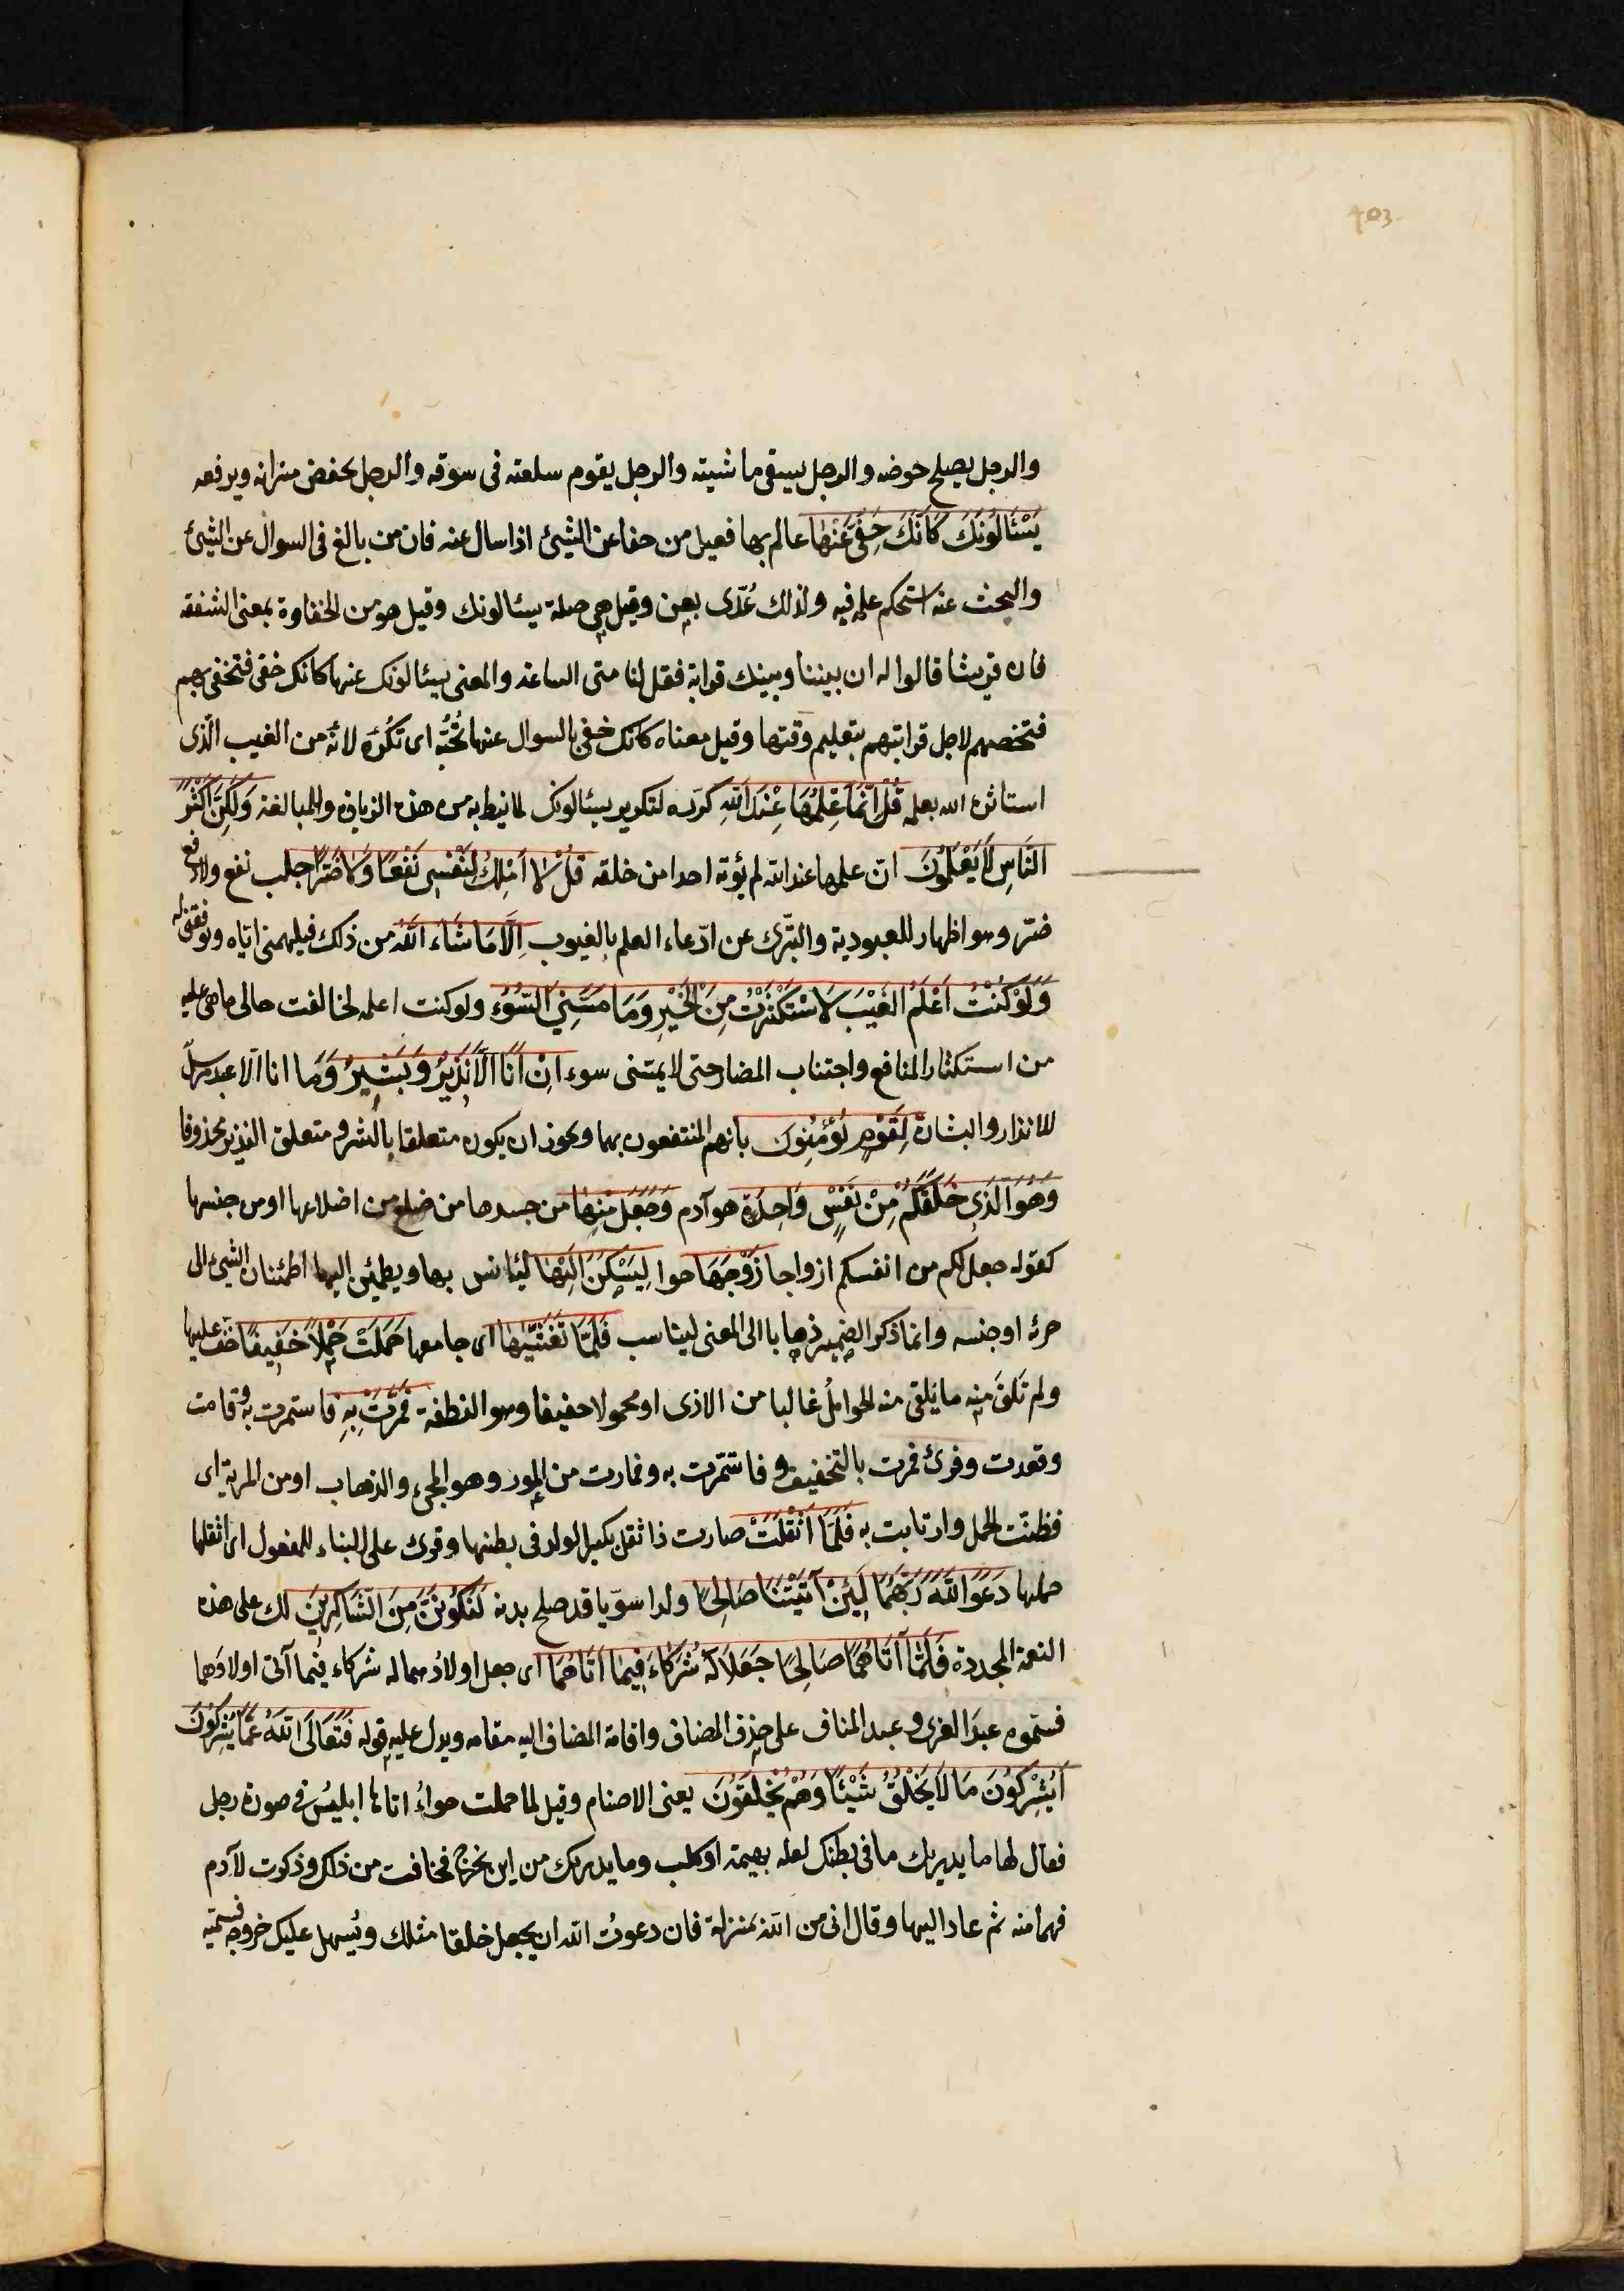 403
والرجل يصلح حوضه والرجل يسقى ماشيته والرجل يقوم سلعته فى سوقه والرجل يخفض ميزانه ويرفعه
يَسْئَالُونَكَ كَأَنَّكَ حَفِىٌّ عَنْهَا عالم بها فعيل من حفا عن الشيئ اذا سال عنه فان من بالغ فى السوال عن الشيئ
والبحث عنه استحكم علمه فيه ولذلك عُدّى بعن وقيل هى صلة يسئالونك وقيل هو من الحفاوة بمعنى الشفقه
فان قريشا قالوا له ان بيننا وبينك قرابة فقل لنا متى الساعة والمعنى يسئالونك عنها كانك حفى فتحفى بهم
فتخصهم لاجل قرابتهم بتعليم وقتها وقيل معناه كانك حفى بالسوال عنها تُحبّه اى تكره لانّه من الغيب الّذى
استاثره الله بعلمه قُلْ اِنَّمَا عِلْمُهَا عِنْدَ اللّهِ كرّره لتكرير يسئالونك لما نيط به من هذه الزيادة وللمبالغة وَلَكِنَّ اَكْثَرَ
النَّاسِ لَا يَعْلَمُونَ انّ علمها عند الله لم يؤته احدا من خلقه قُلْ لَا اَمْلِكُ لِنَفْسِى نَفْعًا وَلَا ضَرًّا جلب نفع ولا دفع
ضرّ وهو اظهار للعبودية والتبّرى عن ادّعاء العلم بالغيوب اِلَّا مَا شَاءَ اللّهُ من ذلك فيلهمنى اياه ويوفقنى له
وَلَوْ كُنْتُ اَعْلَمُ الغَيْبَ لَاسْتَكْثَرْتُ مِنَ الْخَيْرِ وَمَا مَسَّنِيَ السُّوءُ ولو كنت اعلمه لخالفت حالى ما هى عليه
من استكثار المنافع واجتناب المضار حتى لا يمسّنى سوء اِنْ اَنَا اِلَّا نَذِيرٌ وَبَشِيرٌ وَمَا انا الّا عبد مرسل
للانذار والبشارة لِقَوْمٍ يُؤْمِنُونَ بانهم المنتفعون بهما ويجوز ان يكون متعلقا بالبشر ومتعلق النذير محذوفا
وَهُوَ الَّذِى خَلَقَكُمْ مِنْ نَفْسٍ وَاحِدَةٍ هو آدم وَجَعَلَ مِنْهَا من جسدها من ضلع من اضلاعها او من جنسها
كقوله جعل لكم من انفسكم ازواجا زَوْجَهَا حوا لِيَسْكُنَ اِلَيْهَا ليئانس بها ويطمئن اليها اطمئنان الشيئ الى
جزئه او جنسه وانما ذكر الضمير ذهابا الى المعنى ليناسب فَلَمَّا تَغَشَّيٰهَا اى جامعها حَمَلَتْ حَمْلًا خَفِيفًا خفّ عليها
ولم تَلقَ منه ما يَلقى منه الحواملُ غالبا من الاذى او محمولا خفيفا وهو النطفة فَمَرَّتْ بِهِ فاستمرت به وقامت
وقعدت وقرئ فمرت بالتخفيف و فاستمّرت به و فمارت من المور وهو المجيء والذهاب او من المرية اى
فظنّت الحمل وارتابت به فَلَمَّا اَثْقَلَتْ صارت ذا ثقل بكبر الولد فى بطنها وقرئ على البناء للمفعول اى اثقلها
حملها دَعَوَا اللّهَ رَبَّهُمَا لَئِنْ آتَيْتَنَا صَالِحًا ولدا سوّيا قد صلح بدنه لَنَكُونَنَّ مِنَ الشَّاكِرِينَ لك على هذه
النعمة المجددة فَلَمَّا آتَاهُمَا صَالِحًا جَعَلَا لَهُ شُرَكَاءَ فِيمَا اتَاهُمَا اى جعل اولادهما له شركاء فيما آتى اولادَهما
فسّموه عبدَ العزى و عبد المناف على حذف المضاف واقامة المضاف اليه مقامه ويدل عليه قوله فَتَعَالَى اللّهُ عَمَّا يُشْرِكُونَ
اَيُشْرِكُونَ مَا لَا يَخْلُقُ شَيْئًا وَهُمْ يُخْلَقُونَ يعنى الاصنام وقيل لما حملت حواءُ اتاها ابليسُ فى صورة رجل
فقال لها ما يدريك ما فى بطنك لعله بهيمة او كلب وما يدريك من اين يخرج فخافت من ذلك وذكرت لآدم
فهما منه ثم عاد اليها وقال انى من الله بمنزلة فان دعوتُ الله ان يجعل خلقا مثلك ويُسهل عليك خروجه فسمّيه